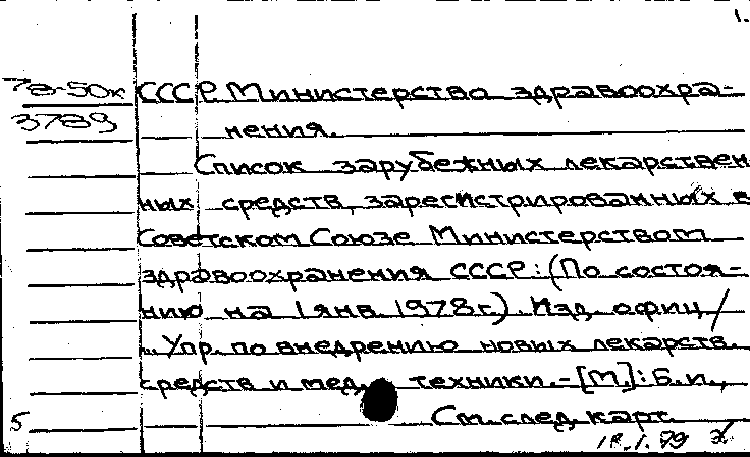 1.
78-50к СССР. Министерство здравоохра-
3789 нения.
Список зарубежных лекарствен
ных средств, зарегистрированных в
Советском Союзе Министерством
здравоохранения СССР: (По состоя-
нию на 1 янв. 1978 г.). Изд. офиц/
Упр. по внедрению новых лекарств.
средств и мед. техники. - [М.]: Б.и.,
5 См. след. карт.